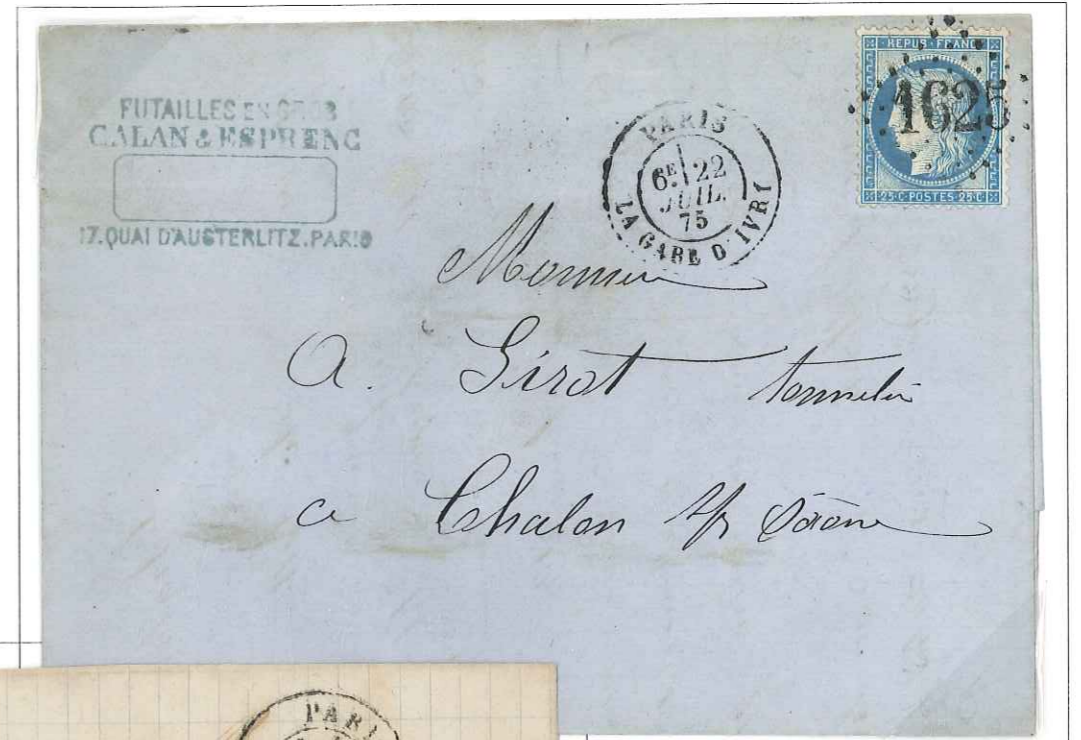 FUTAILLES EN GROS
CALAN & ESPRENC
17. QUAI D'AUSTERLITZ. PARIS
PARIS
6E 22
JUIL.
75
LA GARE D'IVRY
REPUB · FRANC
1625
25·C·POSTES·25·C
Monsieur
A. Girot tonnelier
a Chalon s/r Saône
PARI